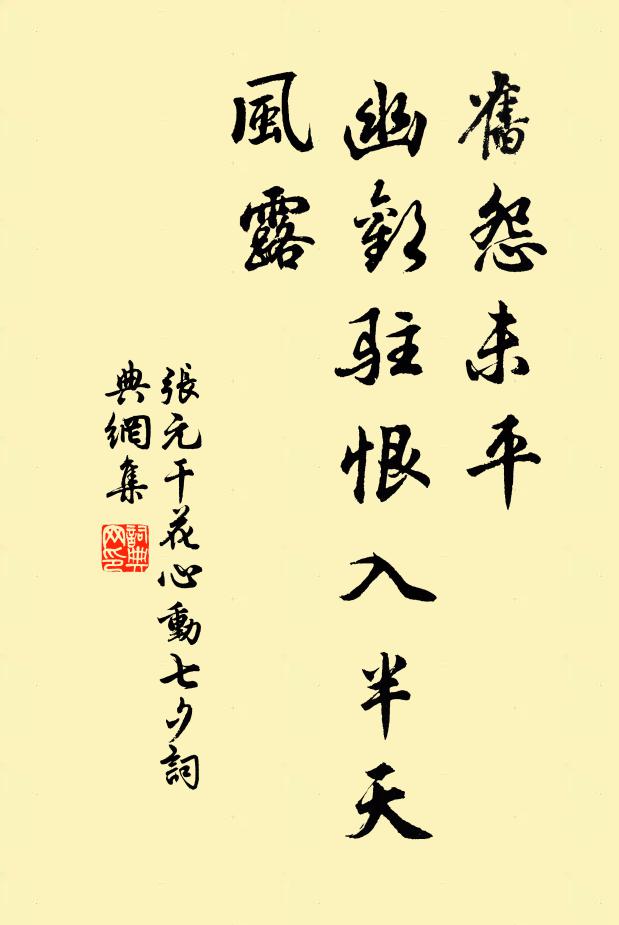 舊怨未平
幽歡駐恨入半天
風露
張元干花心動七夕詞
典網集
詞典網印